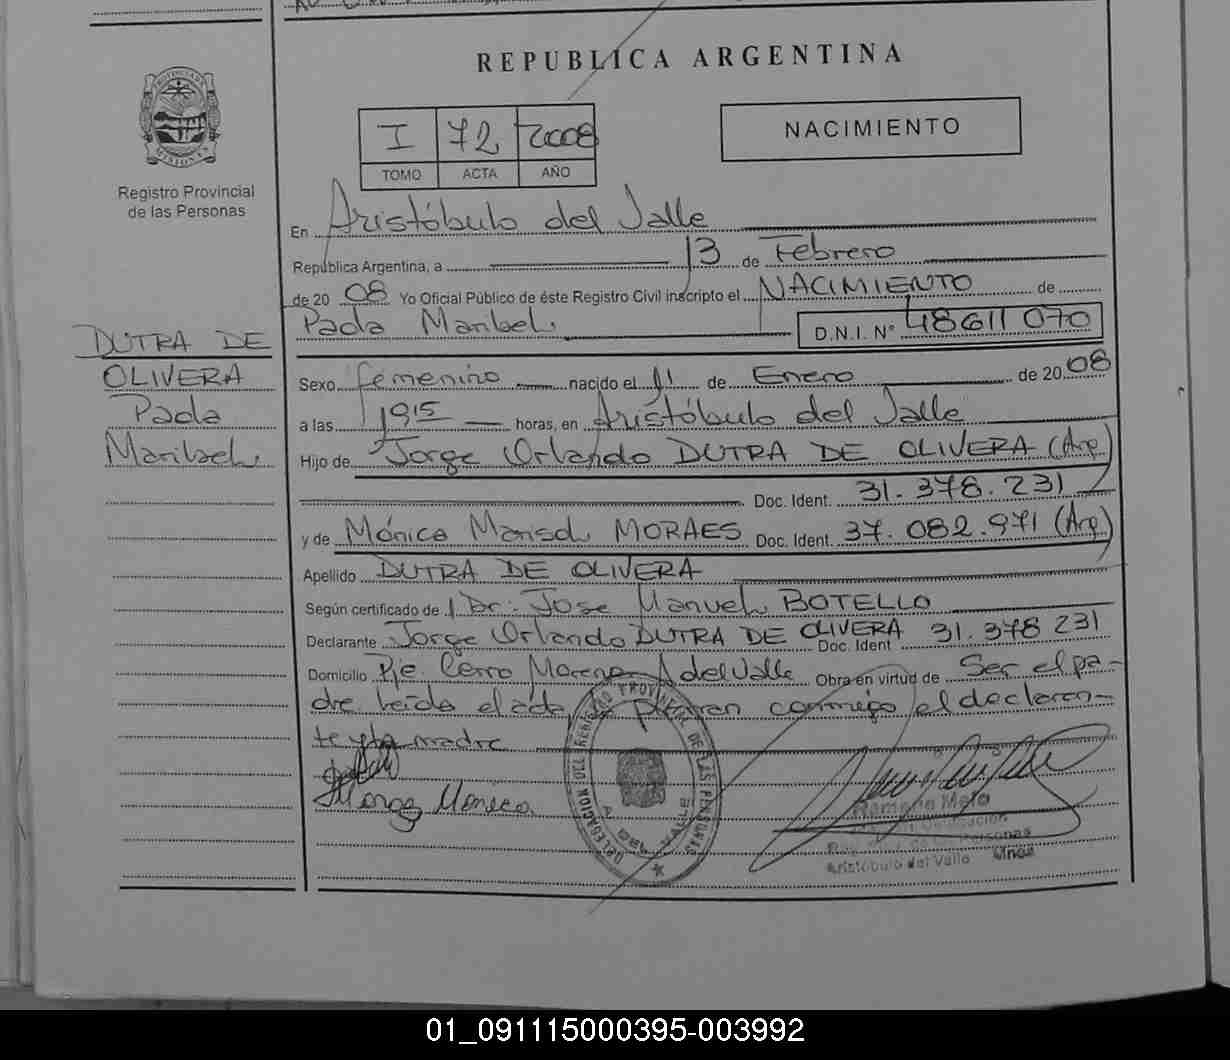 REPUBLICA ARGENTINA
PROVINCIA DE
MISIONES
Registro Provincial
de las Personas
I 72 2008
TOMO ACTA AÑO
NACIMIENTO
En Aristóbulo del Valle
República Argentina, a 13 de Febrero
de 2008 Yo Oficial Público de éste Registro Civil inscripto el NACIMIENTO de
Paola Maribel D.N.I. N° 48611070
DUTRA DE
OLIVERA
Paola
Maribel
Sexo femenino nacido el 11 de Enero de 2008
a las 1915 horas, en Aristóbulo del Valle
Hijo de Jorge Orlando DUTRA DE OLIVERA (Arg)
Doc. Ident. 31.378.231
y de Mónica Marisol MORAES Doc. Ident. 37.082.971 (Arg)
Apellido DUTRA DE OLIVERA
Según certificado de Dr: Jose Manuel BOTELLO
Declarante Jorge Orlando DUTRA DE OLIVERA Doc. Ident 31.378 231
Domicilio Pje Cerro Moreno A del Valle Obra en virtud de Ser el pa-
dre leida el acta firman conmigo el declaran-
te y la madre
Mónica
DELEGACION DEL REGISTRO PROVINCIAL DE LAS PERSONAS
Ramona Melo
Delegación
Personas
Aristóbulo del Valle Mnes
01_091115000395-003992